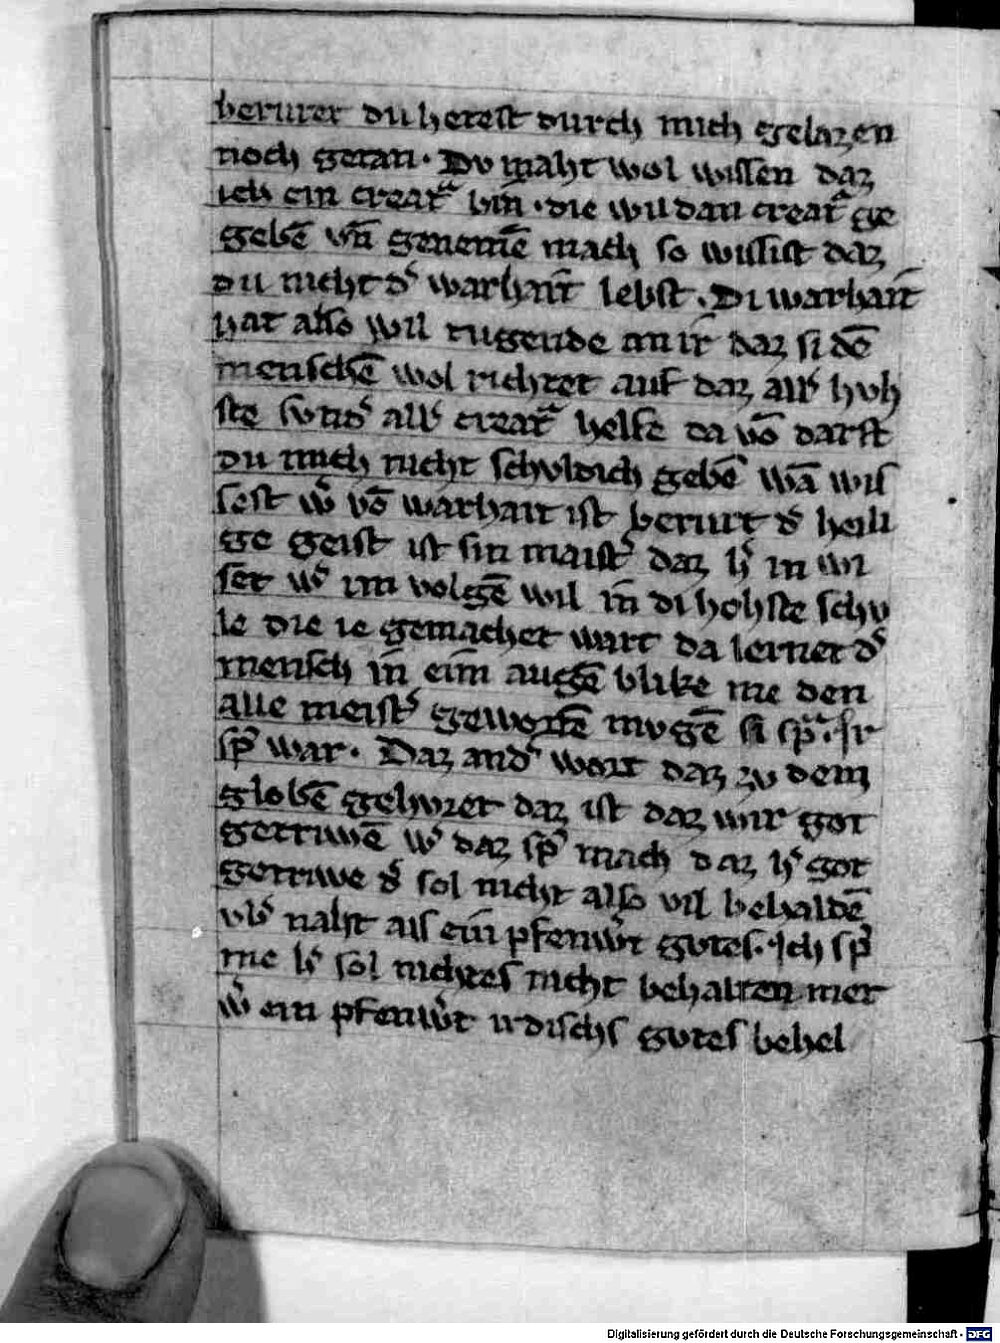 beruret du hetest durch mich gelazen
noch getan · Dv maht wol wissen daz
ich ein creatᵉ bin · die wil dan creatᵉ ge
gebē vn̄ genemē mach so wissist daz
du nicht dˢ warhait lebst · Di warhait
hat also vil tugende an ir daz si dē
menschē wol richtet auf daz allˢ hvh
ste svndˢ allˢ creatᵉ helfe da vō darft
du mich nicht schvldich gebē wā wis
sest wˢ vō warhait ist berurt dˢ heili
ge geist ist sin maistˢ daz hˢ in wi
set wˢ im volgē wil in̄ di hohste schv
le die ie gemachet wart da lernet dˢ
mensch in̄ eim̄ augē blike me den
alle meistˢ gewortē mvgē si spᵃ · ir
spˢ war · Daz andˢ wort daz zv dem
glovbē gehvret daz ist daz wir got
getriwē wˢ daz spˢ mach daz hˢ got
getriwe dˢ sol nicht also vil behaldē
vbˢ naht als ein̄ pfenwˢt gvtes · Ich spˢ
me hˢ sol nichtes nicht behalten mer
wˢ ein pfenwˢt irdischs gvtes behel
Digitalisierung gefördert durch die Deutsche Forschungsgemeinschaft - DFG